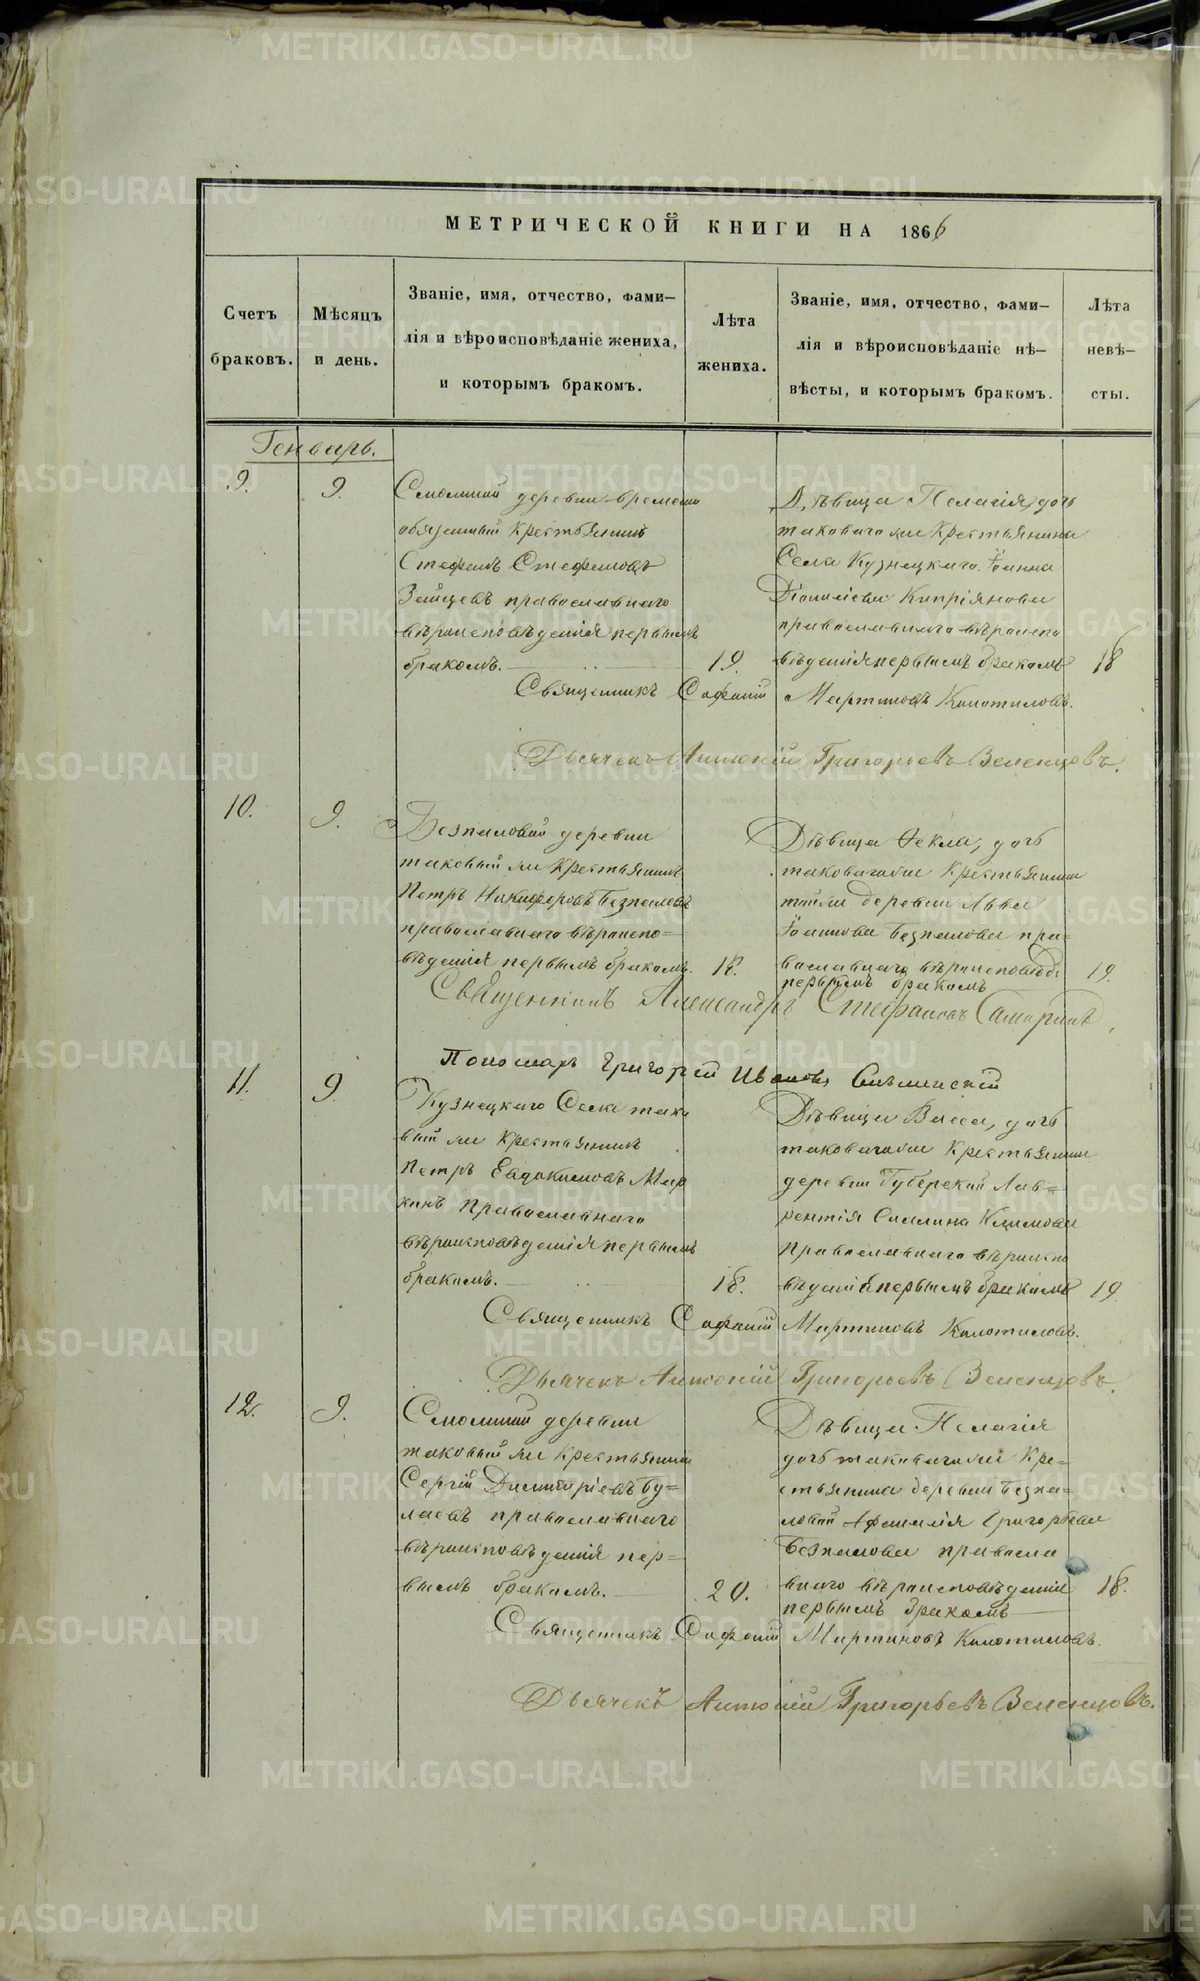 МЕТРИЧЕСКОЙ КНИГИ НА 1866
Счетъ браковъ.
Мѣсяцъ и день.
Званіе, имя, отчество, фами-
лія и вѣроисповѣданіе жениха,
и которымъ бракомъ.
Лѣта жениха.
Званіе, имя, отчество, фами-
лія и вѣроисповѣданіе не-
вѣсты, и которымъ бракомъ.
Лѣта невѣ-
сты.
Генварь.
9. 9.
Смолиной деревни временно
обязанный крестьянинъ
Стефанъ Стефановъ
Зайцевъ православнаго
вѣроисповѣданія первымъ
бракомъ.
19.
Дѣвица Пелагія, дочь
таковаго же крестьянина
Села Кузнецкаго Іоанна
Діонисіева Кипріянова
православнаго вѣроиспо
вѣданія первымъ бракомъ
18
Священникъ Софоній Мартиновъ Колотиловъ.
Дьячекъ Антоній Григорьевъ Веленцовъ.
10. 9.
Безпаловой деревни
таковый же крестьянинъ
Петръ Никифоровъ Безпаловъ
православнаго вѣроиспо=
вѣданія первымъ бракомъ.
18.
Дѣвица Ѳекла, дочь
таковаго же крестьянина
той же деревни Льва
Іоаннова Безпалова пра-
вославнаго вѣроисповѣд:
первымъ бракомъ
19.
Священникъ Александръ Стефановъ
Пономарь Григорій Ивановъ
11. 9.
Кузнецкаго Села тако
вый же крестьянинъ
Петръ Евдокимовъ Мар
кинъ православнаго
вѣроисповѣданія первымъ
бракомъ.
18.
Дѣвица Васса, дочь
таковаго же крестьянина
деревни Губерской Лав=
рентія Климова
православнаго вѣроиспо
вѣданія первымъ бракомъ
19
Священникъ Софоній Мартиновъ Колотиловъ.
Дьячекъ Антоній Григорьевъ Веленцовъ.
12. 9.
Смолиной деревни
таковый же крестьянинъ
Сергій Димитріевъ Бу=
лаевъ православнаго
вѣроисповѣданія пер=
вымъ бракомъ.
20.
Дѣвица Пелагія
дочь таковаго же кре=
стьянина деревни Безпа=
ловой Григорьева
Безпалова правосла
внаго вѣроисповѣданія
первымъ бракомъ
18.
Священникъ Софоній Мартиновъ Колотиловъ.
Дьячекъ Антоній Григорьевъ Веленцовъ.
METRIKI.GASO-URAL.RU